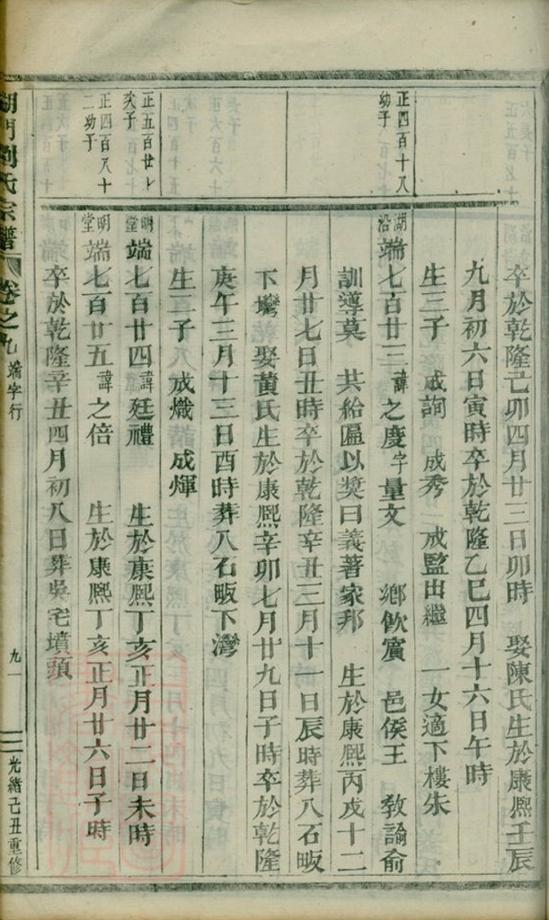 卒於乾隆己卯四月廿三日卯時 娶陳氏生於康熙壬辰
九月初六日寅時卒於乾隆乙巳四月十六日午時
生三子 成詢 成秀 成監出繼 一女適下樓朱
正四百十八
幼子
湖沿 端七百廿三 諱之慶字量文 鄉飲賓 邑侯王 敎諭俞
訓導莫 共給匾以奬曰義著家邦 生於康熙丙戌十二
月廿七日丑時卒於乾隆辛丑三月十一日辰時葬八石畈
下塆娶黃氏生於康熙辛卯七月廿九日子時卒於乾隆
庚午三月十三日酉時葬八石畈下灣
生二子 成熾 成煇
正五百廿
次子
明堂 端七百廿四 諱廷禮 生於康熙丁亥正月廿二日未時
正四百八十
二幼子
明堂 端七百廿五 諱之倍 生於康熙丁亥正月廿六日子時
卒於乾隆辛丑四月初八日葬吳宅墳頭
湖門劉氏宗譜 卷之九 端字行 九一 光緒己丑重修